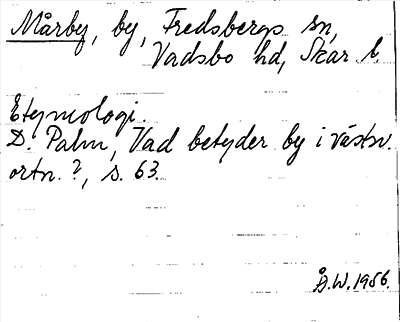 Mårby, by, Fredsbergs sn,
Vadsbo hd, Skar. l.
Etymologi.
D. Palm, Vad betyder by i västsv.
ortn.?, s. 63.
Å.W. 1956.